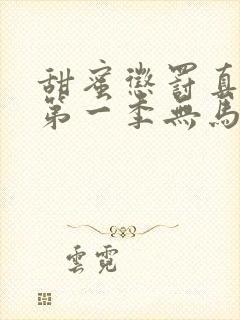 甜蜜懲罰真
第一季無馬
雲霓